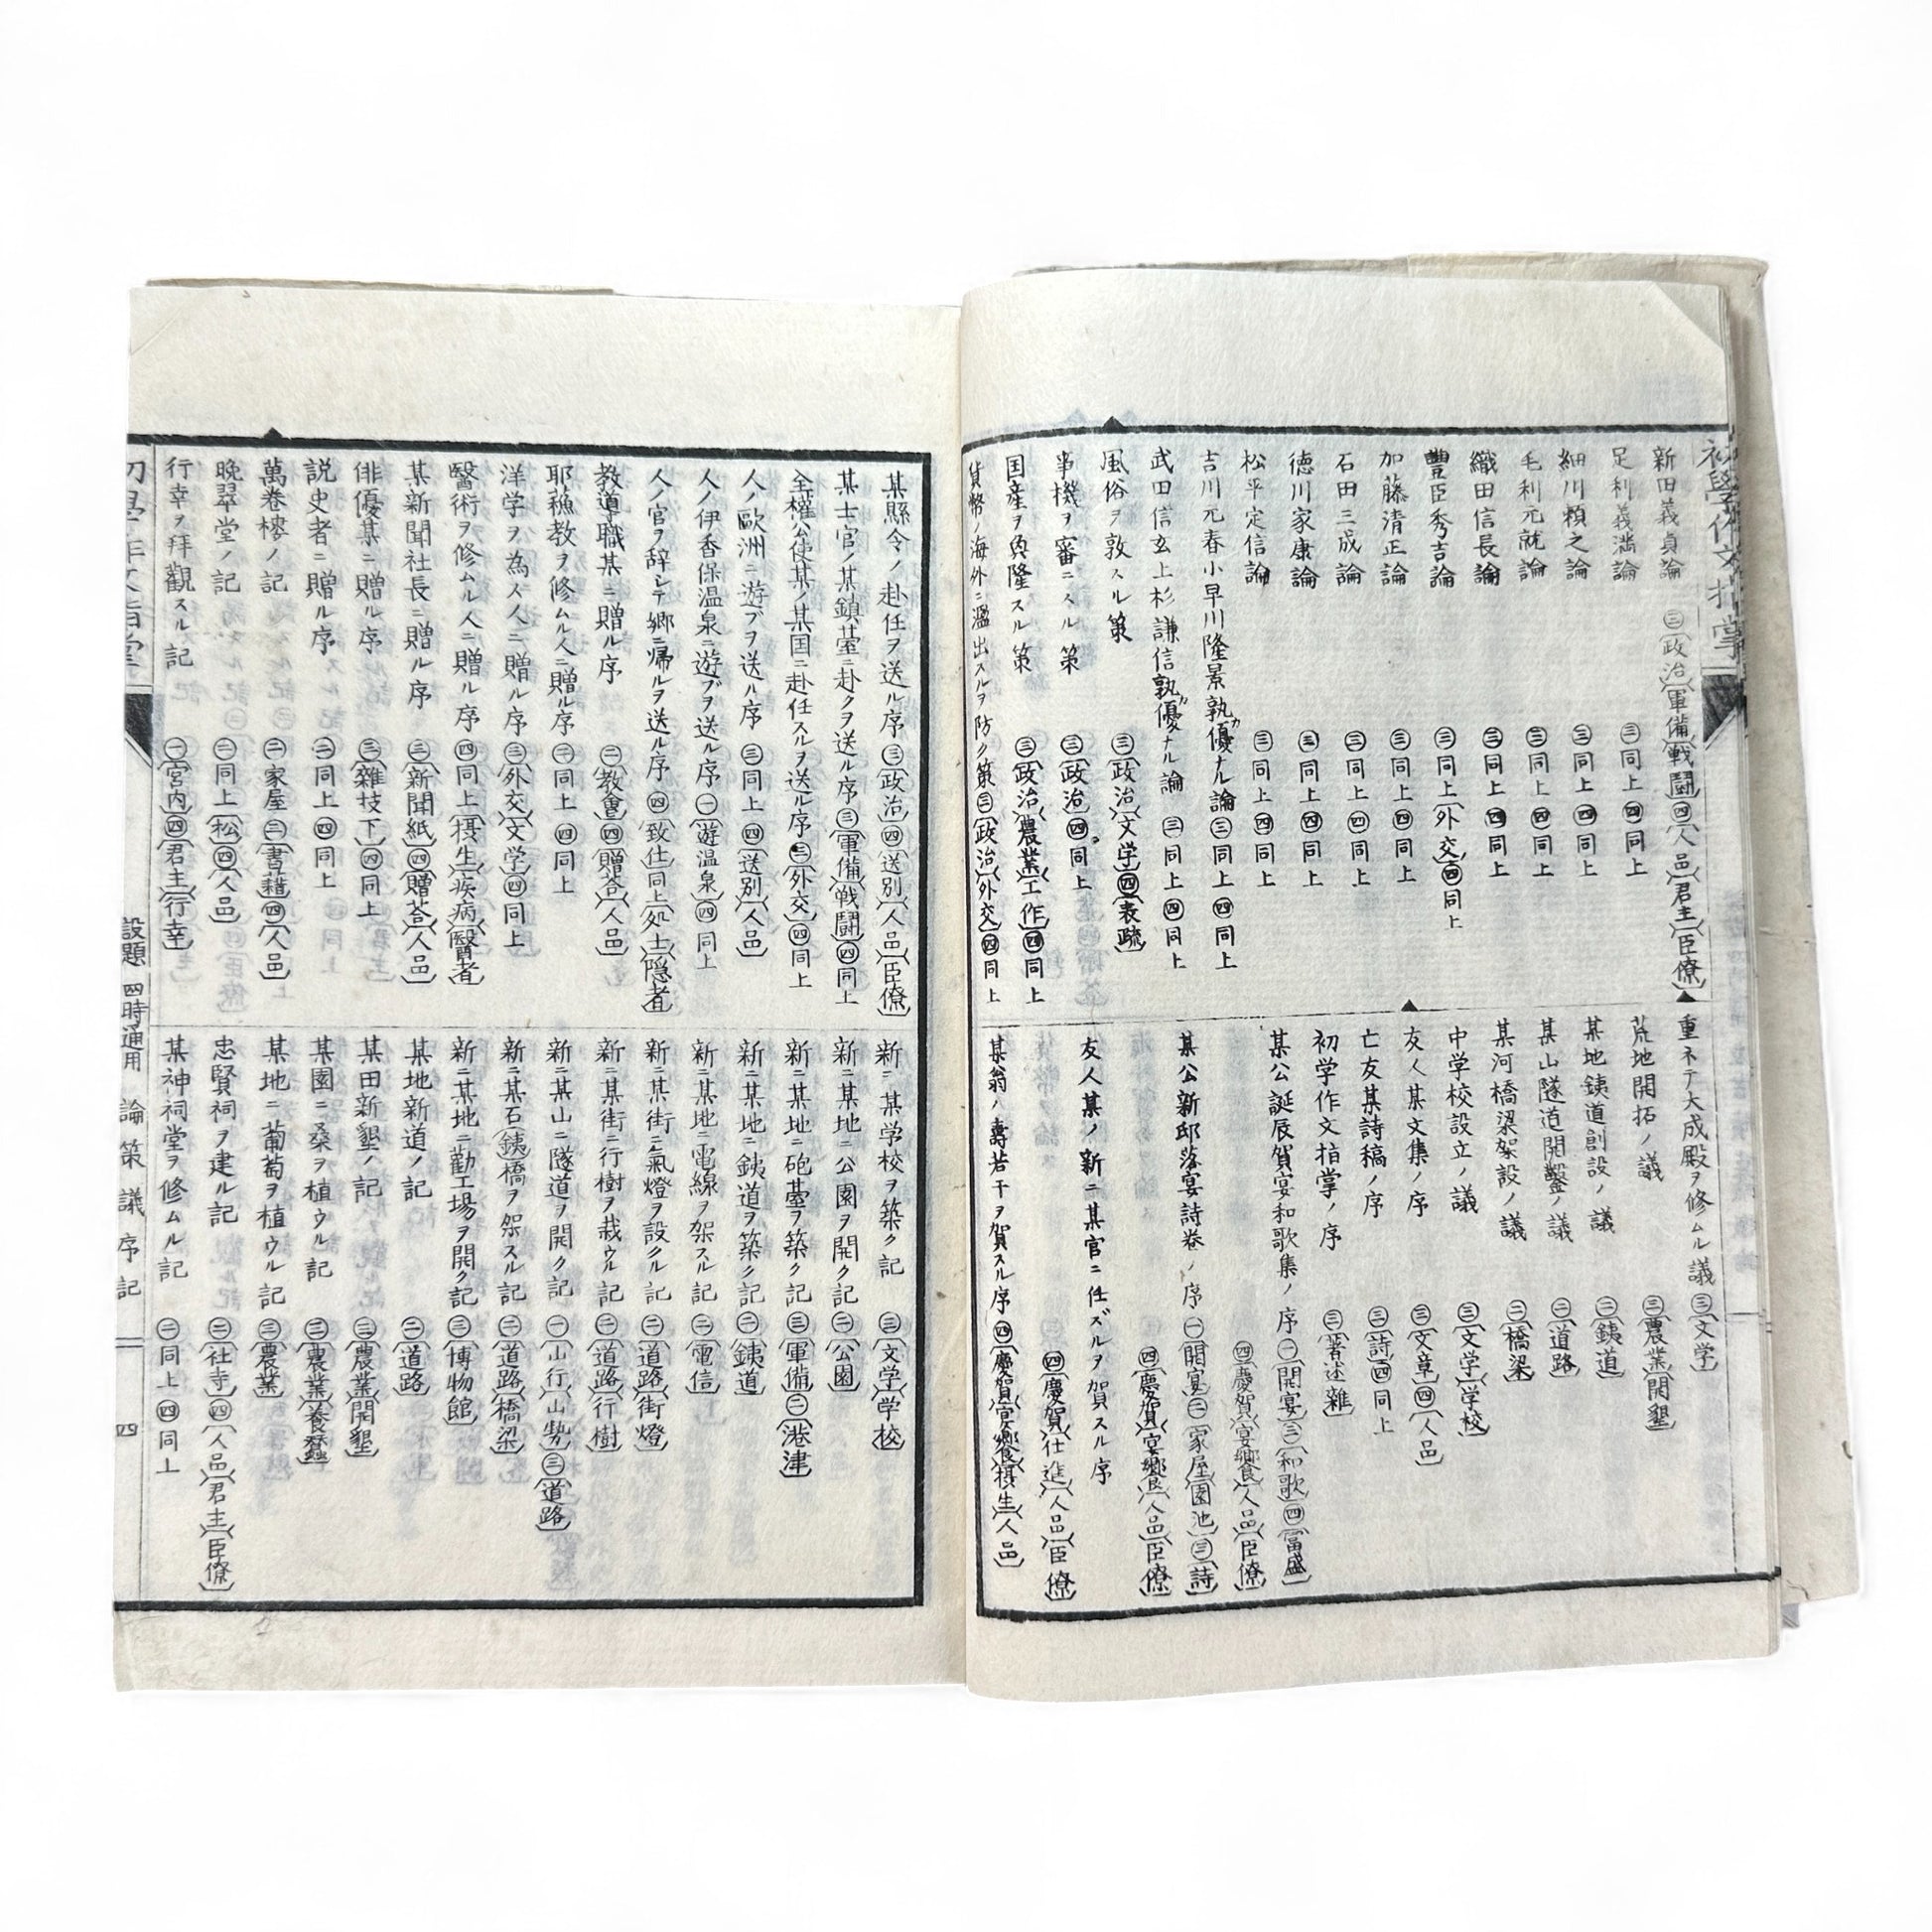 初學作文指掌
新田義貞論 ㊂(政治)(軍備)(戦闘)㊃(人品)(君主)(臣僚)
足利義満論 ㊂同上㊃同上
細川頼之論 ㊂同上㊃同上
毛利元就論 ㊂同上㊃同上
織田信長論 ㊂同上㊃同上
豐臣秀吉論 ㊂同上(外交)㊃同上
加藤清正論 ㊂同上㊃同上
石田三成論 ㊂同上㊃同上
徳川家康論 ㊂同上㊃同上
松平定信論 ㊂同上㊃同上
吉川元春小早川隆景孰カ優ナル論 ㊂同上㊃同上
武田信玄上杉謙信孰カ優ナル論 ㊂同上㊃同上
風俗ヲ敦スル策 ㊂(政治)(文学)㊃(表疏)
事機ヲ審ニスル策 ㊂(政治)㊃同上
国産ヲ興隆スル策 ㊂(政治)(農業)(工作)㊃同上
貨幣ノ海外ニ溢出スルヲ防ク策㊂(政治)(外交)㊃同上
重ネテ大成殿ヲ修ムル議 ㊂(文学)
荒地開拓ノ議 ㊂(農業)(開墾)
某地鉄道創設ノ議 ㊁(鉄道)
某山隧道開鑿ノ議 ㊁(道路)
某河橋梁架設ノ議 ㊁(橋梁)
中学校設立ノ議 ㊂(文学)(学校)
友人某文集ノ序 ㊂(文章)㊃(人品)
亡友某詩稿ノ序 ㊂(詩)㊃同上
初学作文指掌ノ序 ㊂(著述雜)
某公誕辰賀宴和歌集ノ序㊀(開宴)㊂(和歌)㊃(富盛)
㊃(慶賀)(宴饗)(人品)(臣僚)
某公新邸落宴詩卷ノ序㊀(開宴)㊁(家屋)(園池)㊂(詩)
㊃(慶賀)(宴饗)(人品)(臣僚)
友人某ノ新ニ某官ニ任ズルヲ賀スル序
㊃(慶賀)(仕進)(人品)(臣僚)
某翁ノ壽若干ヲ賀スル序㊃(慶賀)(宴饗)(摂生)(人品)
某縣令ノ赴任ヲ送ル序㊂(政治)㊃(送別)(人品)(臣僚)
某士官ノ某鎮䑓ニ赴クヲ送ル序㊂(軍備)(戦闘)㊃同上
全權公使某ノ某国ニ赴任スルヲ送ル序㊂(外交)㊃同上
人ノ歐洲ニ遊ブヲ送ル序 ㊂同上㊃(送別)(人品)
人ノ伊香保温泉ニ遊ブヲ送ル序㊀(遊温泉)㊃同上
人ノ官ヲ辞シテ郷ニ帰ルヲ送ル序 ㊃(致仕)同上(処士)(隠者)
教導職某ニ贈ル序 ㊁(教會)㊃(贈答)(人品)
耶蘓教ヲ修ムル人ニ贈ル序㊁同上㊃同上
洋学ヲ為ス人ニ贈ル序㊂(外交)(文学)㊃同上
醫術ヲ修ムル人ニ贈ル序㊃同上(摂生)(疾病)(醫者)
某新聞社長ニ贈ル序 ㊂(新聞紙)㊃(贈荅)(人品)
俳優某ニ贈ル序 ㊂(雜技下)㊃同上
説史者ニ贈ル序 ㊂同上㊃同上
萬卷樓ノ記 ㊁(家屋)㊂(書籍)㊃(人品)
晩翠堂ノ記 ㊁同上(松)㊃(人品)
行幸ヲ拜觀スル記 ㊀(宮内)㊃(君主)(行幸)
新ニ某学校ヲ築ク記 ㊂(文学)(学校)
新ニ某地ニ公園ヲ開ク記㊁(公園)
新ニ某地ニ砲䑓ヲ築ク記㊂(軍備)㊁(港津)
新ニ某地ニ鉄道ヲ築ク記㊁(鉄道)
新ニ某地ニ電線ヲ架スル記㊁(電信)
新ニ某街ニ氣燈ヲ設クル記㊁(道路)(街燈)
新ニ某街ニ行樹ヲ栽ウル記㊁(道路)(行樹)
新ニ某山ニ隧道ヲ開ク記㊀(山行)(山勢)㊁(道路)
新ニ某石(鉄)橋ヲ架スル記㊁(道路)(橋梁)
新ニ某地ニ勸工場ヲ開ク記㊂(博物館)
某地新道ノ記 ㊁(道路)
某田新墾ノ記 ㊂(農業)(開墾)
某園ニ桑ヲ植ウル記 ㊂(農業)(養蠶)
某地ニ葡萄ヲ植ウル記 ㊂(農業)
忠賢祠ヲ建ル記 ㊁(社寺)㊃(人品)(君主)(臣僚)
某神祠堂ヲ修ムル記 ㊁同上㊃同上
初學作文指掌 設題 四時通用 論 策 議 序 記 四